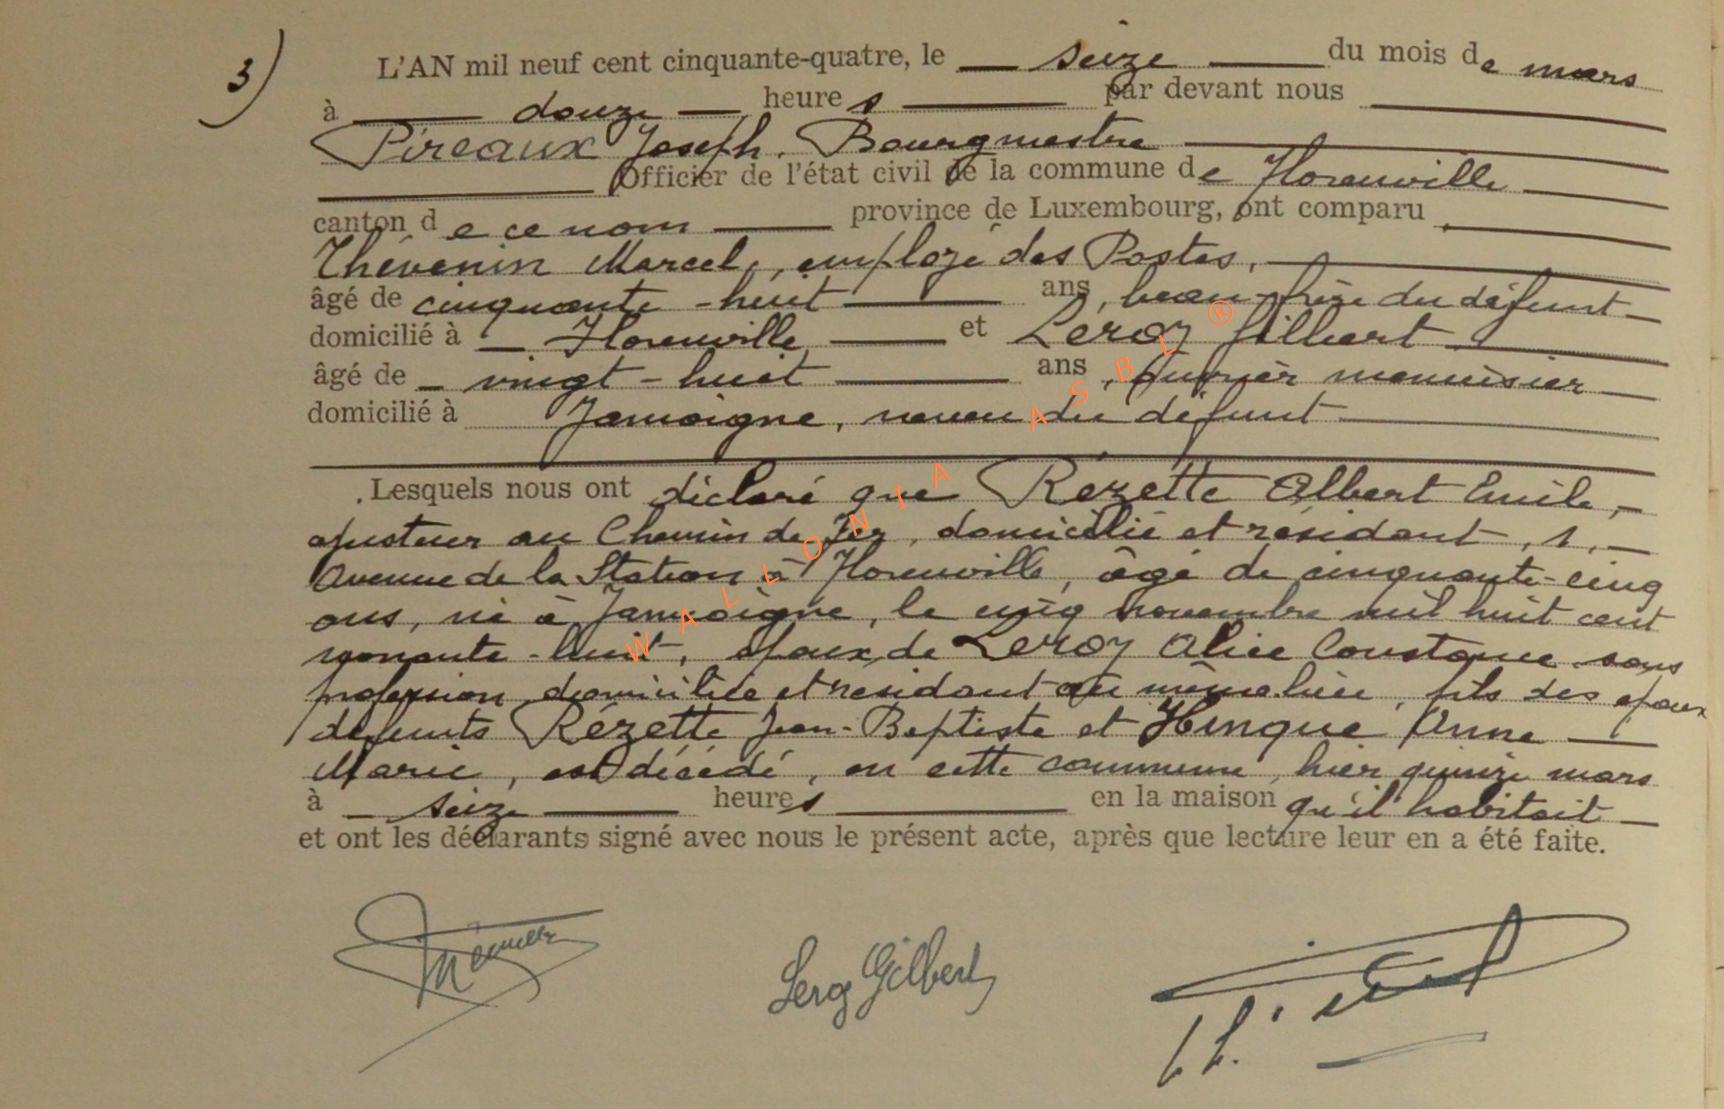 3)
L'AN mil neuf cent cinquante-quatre, le seize du mois de mars
à douze heures par devant nous
Pireaux Joseph, Bourgmestre
Officier de l'état civil de la commune de Florenville
canton de ce nom province de Luxembourg, ont comparu
Thévenin Marcel, employé des Postes,
âgé de cinquante-huit ans, beau-frère du défunt
domicilié à Florenville et Leroy Gilbert
âgé de vingt-huit ans, ouvrier menuisier
domicilié à Jamoigne, neveu du défunt
Lesquels nous ont déclaré que Rézette Albert Emile,
ajusteur au Chemin de Fer, domicilié et résidant, 1,
Avenue de la Station à Florenville, âgé de cinquante-cinq
ans, né à Jamoigne, le cinq novembre mil huit cent
nonante-huit, époux de Leroy Alice Constance sans
profession, domiciliée et résidant au même lieu, fils des époux
défunts Rézette Jean-Baptiste et Hinque Anne
Marie, est décédé, en cette commune, hier quinze mars
à seize heures en la maison qu'il habitait
et ont les déclarants signé avec nous le présent acte, après que lecture leur en a été faite.
Leroy Gilbert
WALLONIA ASBL ®